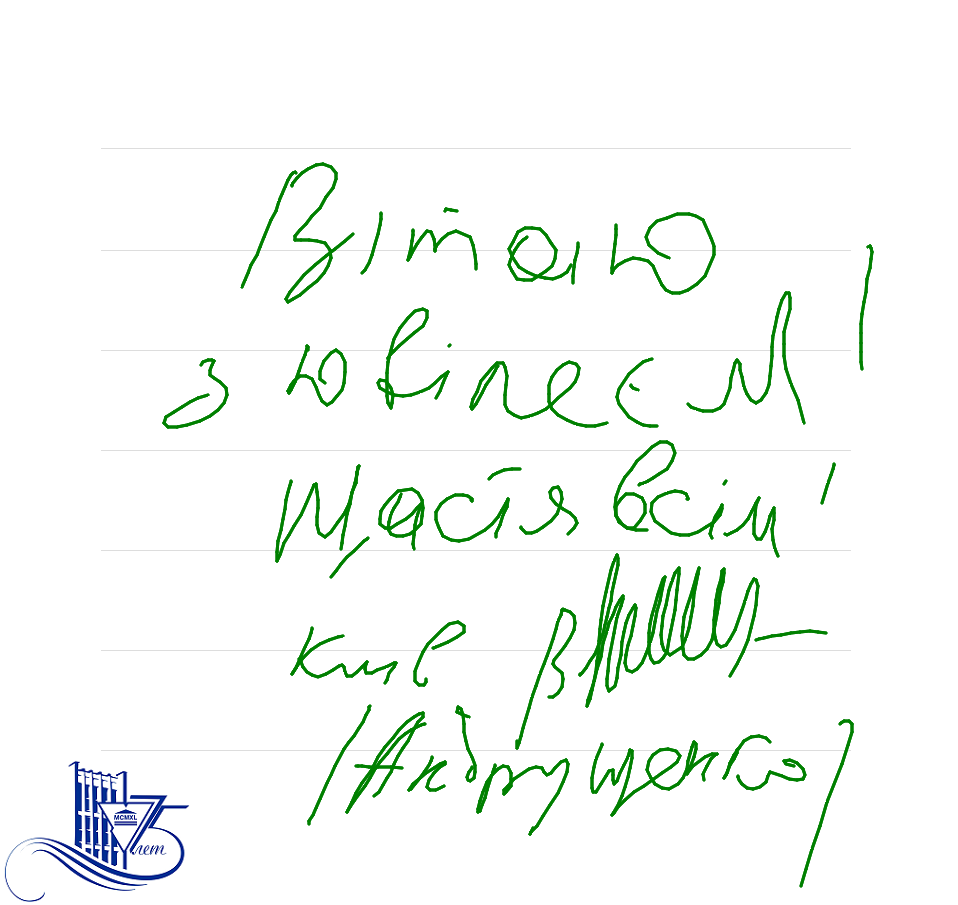 Вітаю
з ювілеєм!
Щастя всім!
київ
/Андрущенко/
MCMXL
75 лет